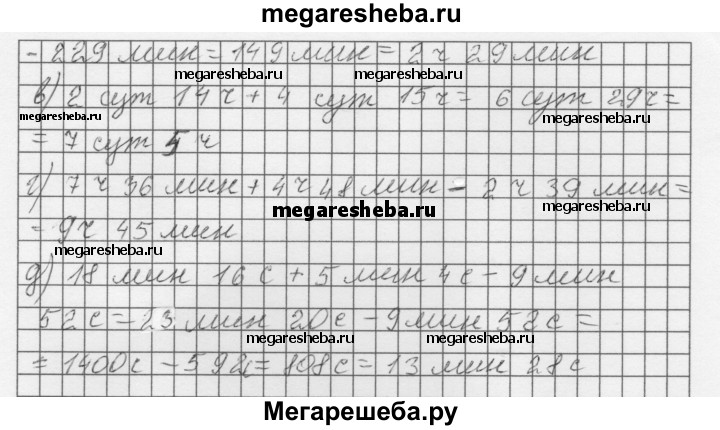 megaresheba.ru
- 229 мин = 149 мин = 2ч 29 мин
megaresheba.ru megaresheba.ru
в) 2 сут 14ч + 4 сут 15ч = 6 сут 29ч =
megaresheba.ru megaresheba.ru
= 7 сут 5 ч
г) 7 ч 36 мин + 4ч 48 мин - 2 ч 39 мин =
megaresheba.ru megaresheba.ru
= 9ч 45 мин
megaresheba.ru
д) 18 мин 16 с + 5 мин 4с - 9 мин
52с = 23 мин 20с - 9 мин 52с =
megaresheba.ru megaresheba.ru
= 1400с - 592с = 808с = 13 мин 28с
Мегарешеба.ру